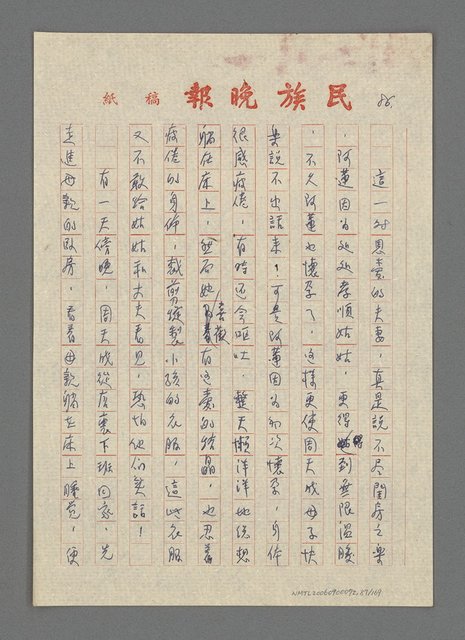 民族晚報 稿紙
86.
這一對恩愛的夫妻，真是說不盡閨房之樂
，阿蓮因為処処孝順姑姑，更得到無限溫暖
，不久阿蓮也懷孕了，這樣更使周天成母子快
樂說不出話來！可是阿蓮因為初次懷孕，身体
很感疲倦，有時还會嘔吐，整天懶洋洋地总想
躺在床上，然而她喜歡有这爱的結晶，也忍着
疲倦的身体，裁剪縫製小孩的衣服，這些衣服
又不敢給姑姑和丈夫看見，恐怕他们笑話！
有一天傍晚，周天成從店裏下班回家，先
走進母親的臥房，看着母親躺在床上睡覺，便
NMTL20060900092.87/169